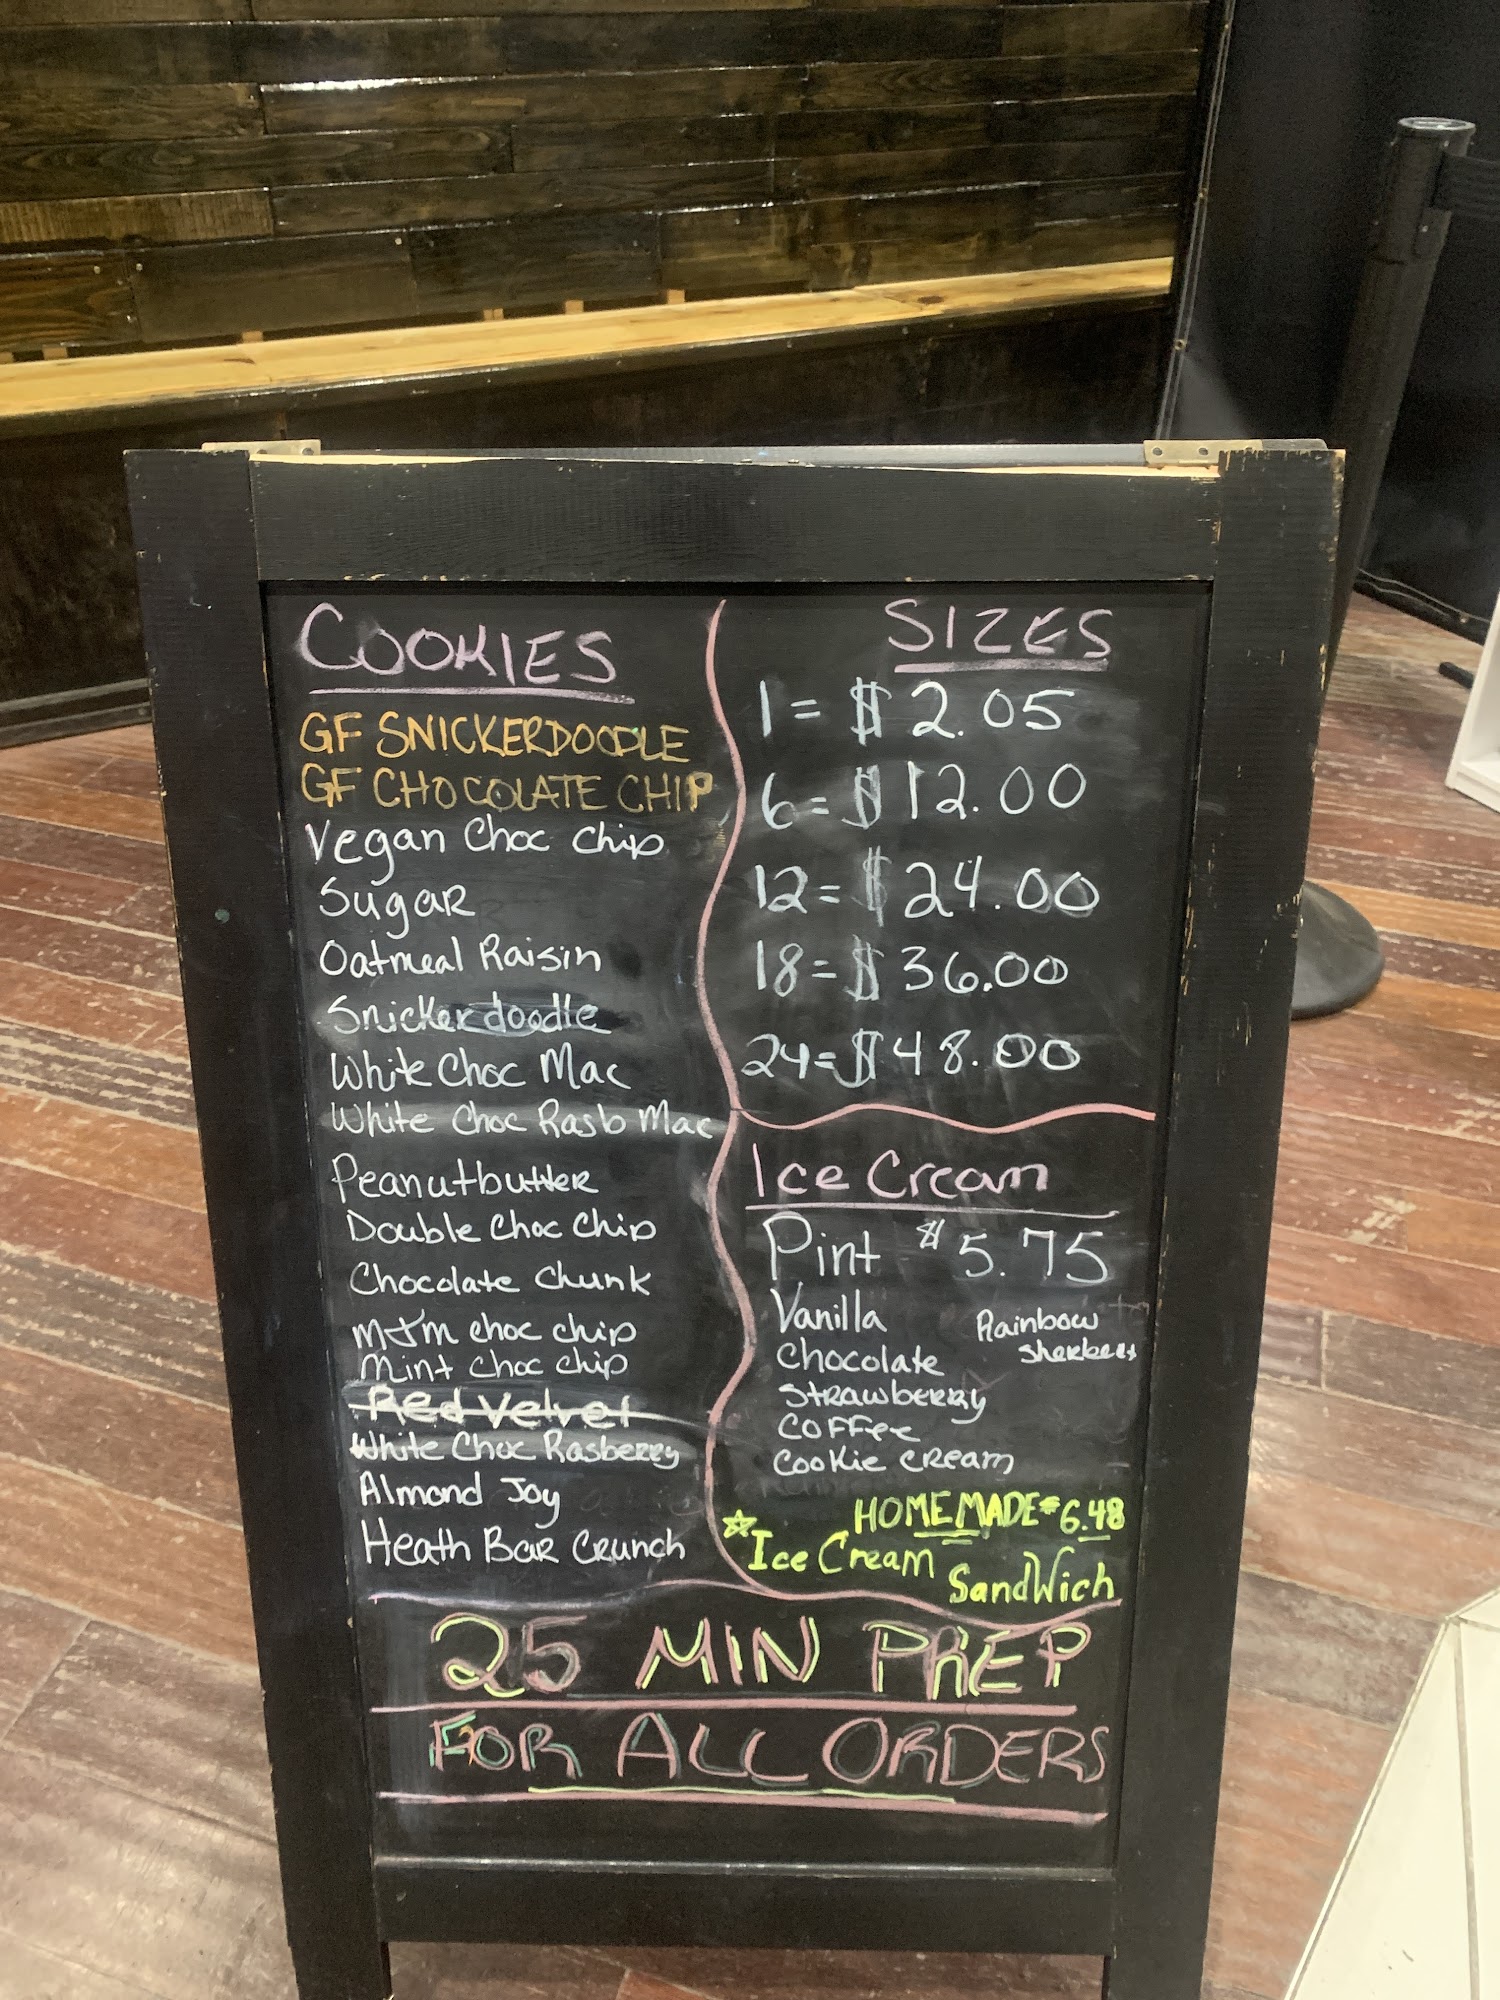 COOKIES
GF SNICKERDOODLE
GF CHOCOLATE CHIP
Vegan Choc Chip
Sugar
Oatmeal Raisin
Snickerdoodle
White Choc Mac
White Choc Rasb Mac
Peanutbutter
Double Choc Chip
Chocolate Chunk
M&M Choc Chip
Mint Choc Chip
Red Velvet
White Choc Rasberry
Almond Joy
Heath Bar Crunch
SIZES
1 = $ 2.05
6 = $ 12.00
12 = $ 24.00
18 = $ 36.00
24 = $ 48.00
Ice Cream
Pint $ 5.75
Vanilla
Chocolate
Strawberry
Coffee
Cookie Cream
Rainbow
Sherbert
HOMEMADE $6.48
Ice Cream
Sandwich
25 MIN PREP
FOR ALL ORDERS